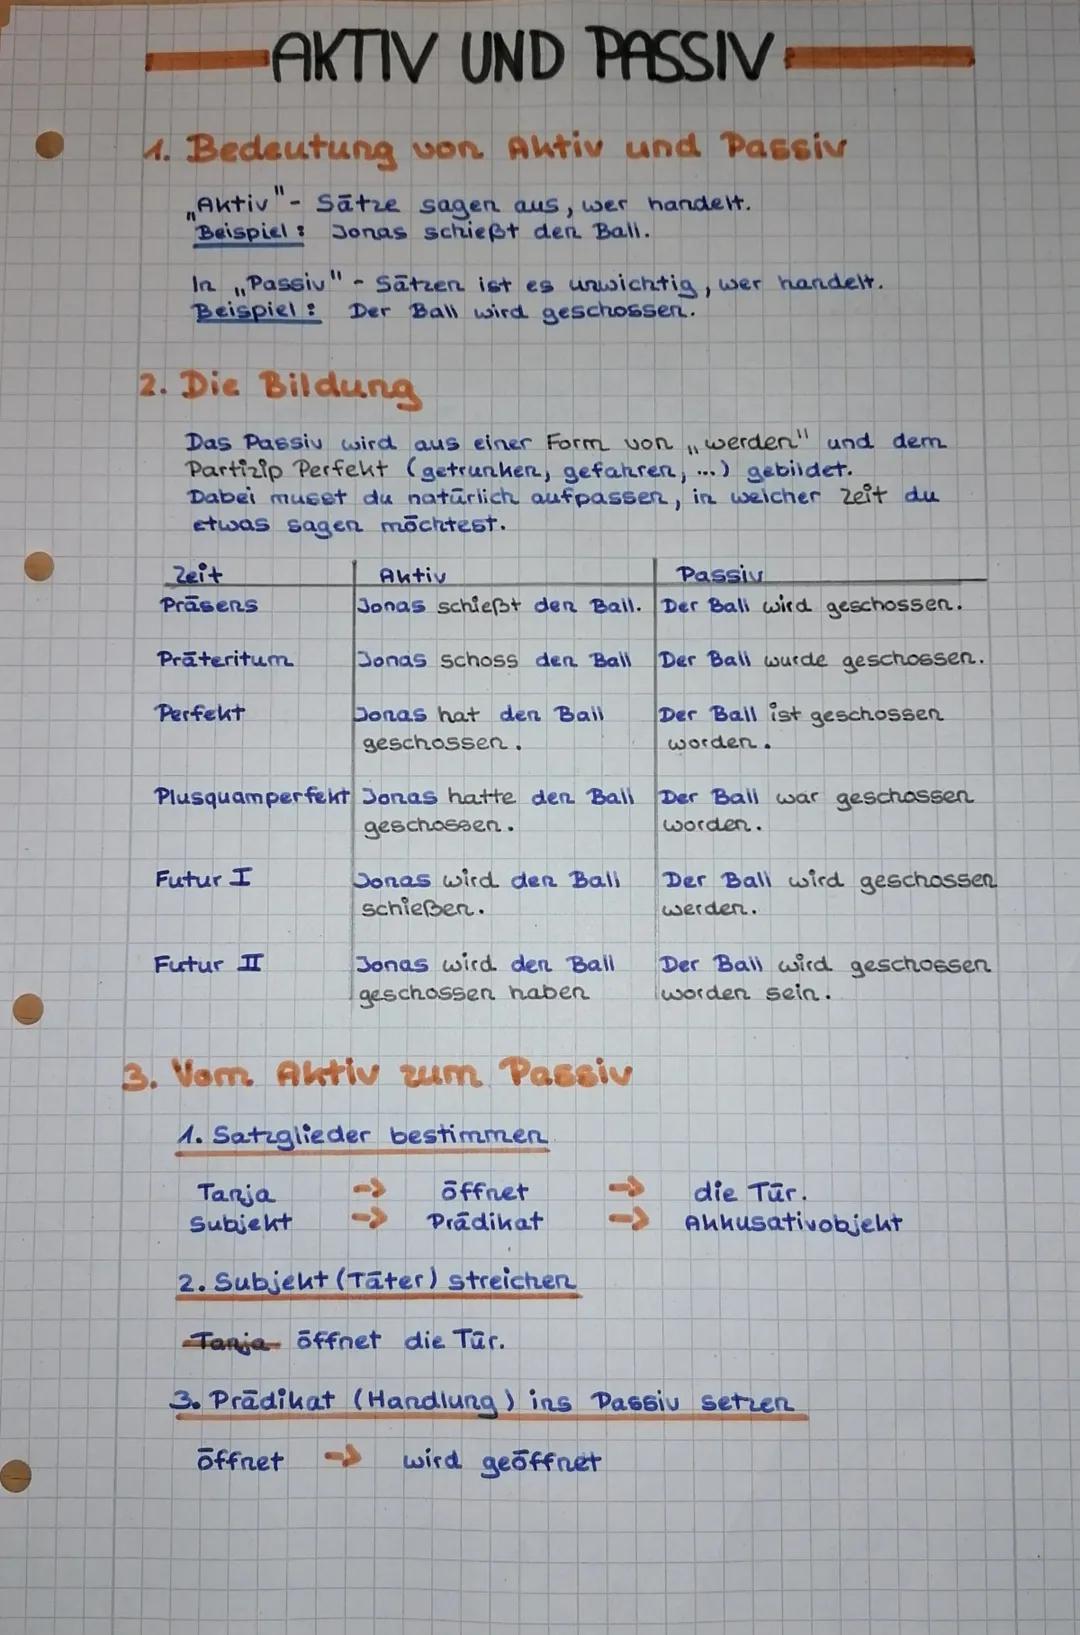 AKTIV UND PASSIV
1. Bedeutung von Aktiv und Passiv
„Aktiv"- Sätze sagen aus, wer handelt.
Beispiel: Jonas schießt den Ball.
In „Passiv" - Sätzen ist es unwichtig, wer handelt.
Beispiel: Der Ball wird geschossen.
2. Die Bildung
Das Passiv wird aus einer Form von „werden" und dem
Partizip Perfekt (getrunken, gefahren, ...) gebildet.
Dabei musst du natürlich aufpassen, in welcher Zeit du
etwas sagen möchtest.
Zeit Aktiv Passiv
Präsens Jonas schießt den Ball. Der Ball wird geschossen.
Präteritum Jonas schoss den Ball Der Ball wurde geschossen.
Perfekt Jonas hat den Ball Der Ball ist geschossen
geschossen. worden.
Plusquamperfekt Jonas hatte den Ball Der Ball war geschossen
geschossen. worden.
Futur I Jonas wird den Ball Der Ball wird geschossen
schießen. werden.
Futur II Jonas wird den Ball Der Ball wird geschossen
geschossen haben worden sein.
3. Vom Aktiv zum Passiv
1. Satzglieder bestimmen
Tanja → öffnet → die Tür.
Subjekt → Prädikat → Akkusativobjekt
2. Subjekt (Täter) streichen
Tanja öffnet die Tür.
3. Prädikat (Handlung) ins Passiv setzen
öffnet → wird geöffnet